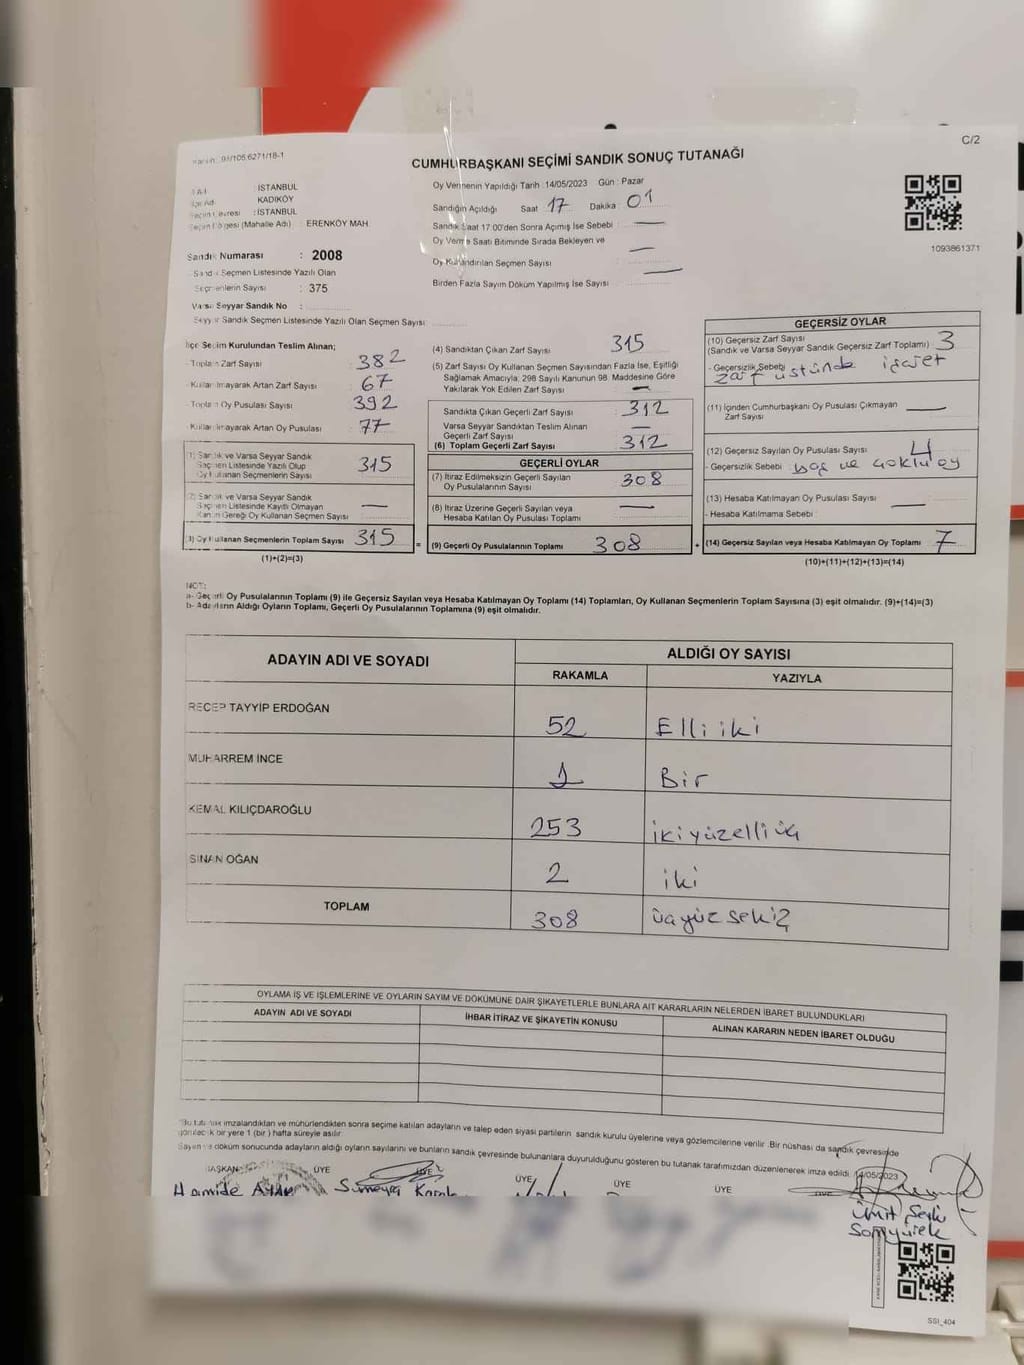 C/2
CUMHURBAŞKANI SEÇİMİ SANDIK SONUÇ TUTANAĞI
: İSTANBUL
KADIKÖY
: İSTANBUL
(Mahalle Adı) : ERENKÖY MAH.
Sandık Numarası : 2008
Sandık Seçmen Listesinde Yazılı Olan
Seçmenlerin Sayısı : 375
Varsa Seyyar Sandık No :
Seyyar Sandık Seçmen Listesinde Yazılı Olan Seçmen Sayısı
Oy Vermenin Yapıldığı Tarih :14/05/2023 Gün : Pazar
Sandığın Açıldığı Saat 17 Dakika : 01
Sandık Saat 17:00'den Sonra Açımış İse Sebebi
Oy Verme Saati Bitiminde Sırada Bekleyen ve
Oy Kullandırılan Seçmen Sayısı
Birden Fazla Sayım Döküm Yapılmış İse Sayısı :
1093861371
İlçe Seçim Kurulundan Teslim Alınan;
Toplam Zarf Sayısı : 382
Kullanılmayarak Artan Zarf Sayısı : 67
Toplam Oy Pusulası Sayısı : 392
Kullanılmayarak Artan Oy Pusulası : 77
(1) Sandık ve Varsa Seyyar Sandık
Seçmen Listesinde Yazılı Olup
Oy Kullanan Seçmenlerin Sayısı 315
(2) Sandık ve Varsa Seyyar Sandık
Seçmen Listesinde Kayıtlı Olmayan
Kanun Gereği Oy Kullanan Seçmen Sayısı —
(3) Oy Kullanan Seçmenlerin Toplam Sayısı 315 =
(1)+(2)=(3)
(4) Sandıktan Çıkan Zarf Sayısı 315
(5) Zarf Sayısı Oy Kullanan Seçmen Sayısından Fazla İse, Eşitliği
Sağlamak Amacıyla, 298 Sayılı Kanunun 98. Maddesine Göre
Yakılarak Yok Edilen Zarf Sayısı —
Sandıkta Çıkan Geçerli Zarf Sayısı 312
Varsa Seyyar Sandıktan Teslim Alınan
Geçerli Zarf Sayısı —
(6) Toplam Geçerli Zarf Sayısı 312
GEÇERLİ OYLAR
(7) İtiraz Edilmeksizin Geçerli Sayılan
Oy Pusulalarının Sayısı 308
(8) İtiraz Üzerine Geçerli Sayılan veya
Hesaba Katılan Oy Pusulası Toplamı —
(9) Geçerli Oy Pusulalarının Toplamı 308 +
GEÇERSİZ OYLAR
(10) Geçersiz Zarf Sayısı
(Sandık ve Varsa Seyyar Sandık Geçersiz Zarf Toplamı) 3
- Geçersizlik Sebebi zarf üstünde işaret
(11) İçinden Cumhurbaşkanı Oy Pusulası Çıkmayan
Zarf Sayısı —
(12) Geçersiz Sayılan Oy Pusulası Sayısı 4
- Geçersizlik Sebebi boş ve çoklu oy
(13) Hesaba Katılmayan Oy Pusulası Sayısı —
- Hesaba Katılmama Sebebi :
(14) Geçersiz Sayılan veya Hesaba Katılmayan Oy Toplamı 7
(10)+(11)+(12)+(13)=(14)
NOT:
a- Geçerli Oy Pusulalarının Toplamı (9) ile Geçersiz Sayılan veya Hesaba Katılmayan Oy Toplamı (14) Toplamları, Oy Kullanan Seçmenlerin Toplam Sayısına (3) eşit olmalıdır. (9)+(14)=(3)
b- Adayların Aldığı Oyların Toplamı, Geçerli Oy Pusulalarının Toplamına (9) eşit olmalıdır.
ADAYIN ADI VE SOYADI
ALDIĞI OY SAYISI
RAKAMLA YAZIYLA
RECEP TAYYİP ERDOĞAN 52 Elli iki
MUHARREM İNCE 1 Bir
KEMAL KILIÇDAROĞLU 253 ikiyüzelli üç
SİNAN OĞAN 2 iki
TOPLAM 308 üçyüz sekiz
OYLAMA İŞ VE İŞLEMLERİNE VE OYLARIN SAYIM VE DÖKÜMÜNE DAİR ŞİKAYETLERLE BUNLARA AİT KARARLARIN NELERDEN İBARET BULUNDUKLARI
ADAYIN ADI VE SOYADI İHBAR İTİRAZ VE ŞİKAYETİN KONUSU ALINAN KARARIN NEDEN İBARET OLDUĞU
imzalandıktan ve mühürlendikten sonra seçime katılan adayların ve talep eden siyasi partilerin sandık kurulu üyelerine veya gözlemcilerine verilir. Bir nüshası da sandık çevresinde
bir yere 1 (bir) hafta süreyle asılır.
Sayım ve döküm sonucunda adayların aldığı oyların sayılarını ve bunların sandık çevresinde bulunanlara duyurulduğunu gösteren bu tutanak tarafımızdan düzenlenerek imza edildi. 14/05/2023
BAŞKAN ÜYE ÜYE ÜYE ÜYE ÜYE
Hamide
Ümit
SSİ_404